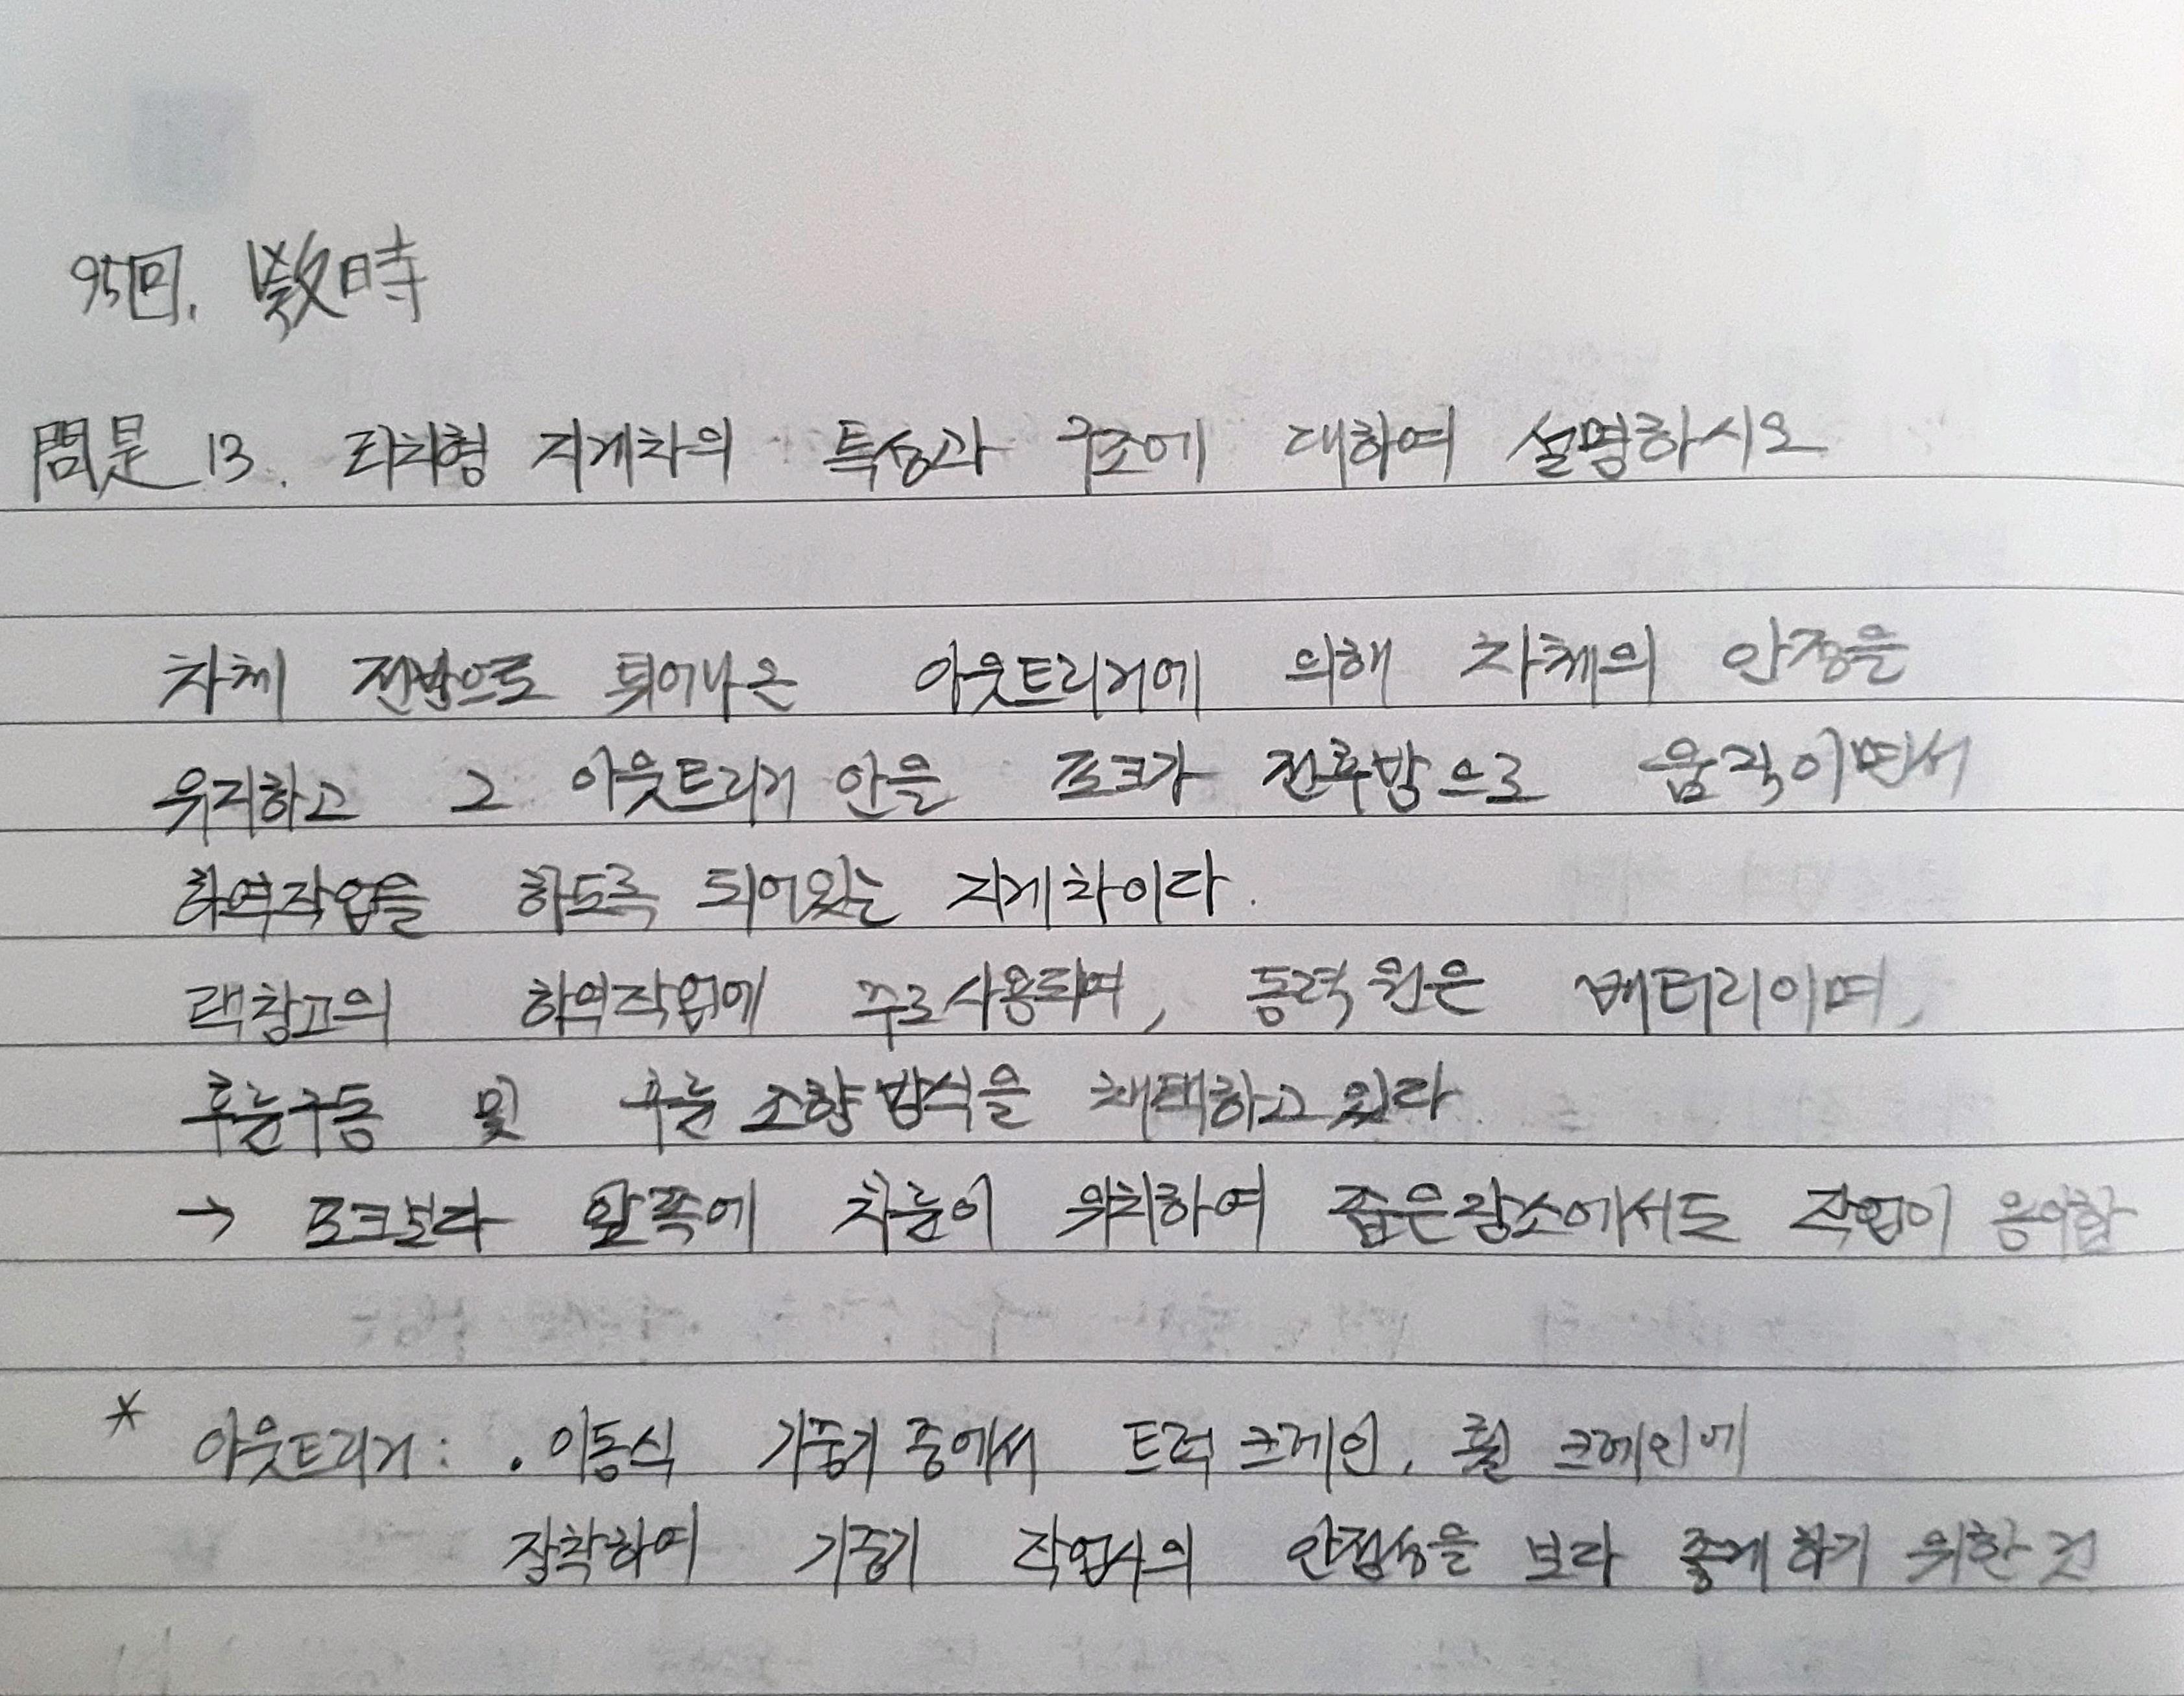 95回. 敎時
問是 13. 리치형 지게차의 특성과 구조에 대하여 설명하시오
차체 전방으로 튀어나온 아웃트리거에 의해 차체의 안정을
유지하고 그 아웃트리거 안을 포크가 전후방으로 움직이면서
하역작업을 하도록 되어있는 지게차이다.
랙창고의 하역작업에 주로 사용되며, 동력원은 배터리이며,
후륜구동 및 후륜 조향방식을 채택하고 있다.
→ 포크보다 앞쪽에 차륜이 위치하여 좁은장소에서도 작업이 용이함
* 아웃트리거: . 이동식 기중기 중에서 트럭 크레인, 휠 크레인에
장착하여 기중기 작업시의 안정성을 보다 좋게 하기 위한 것